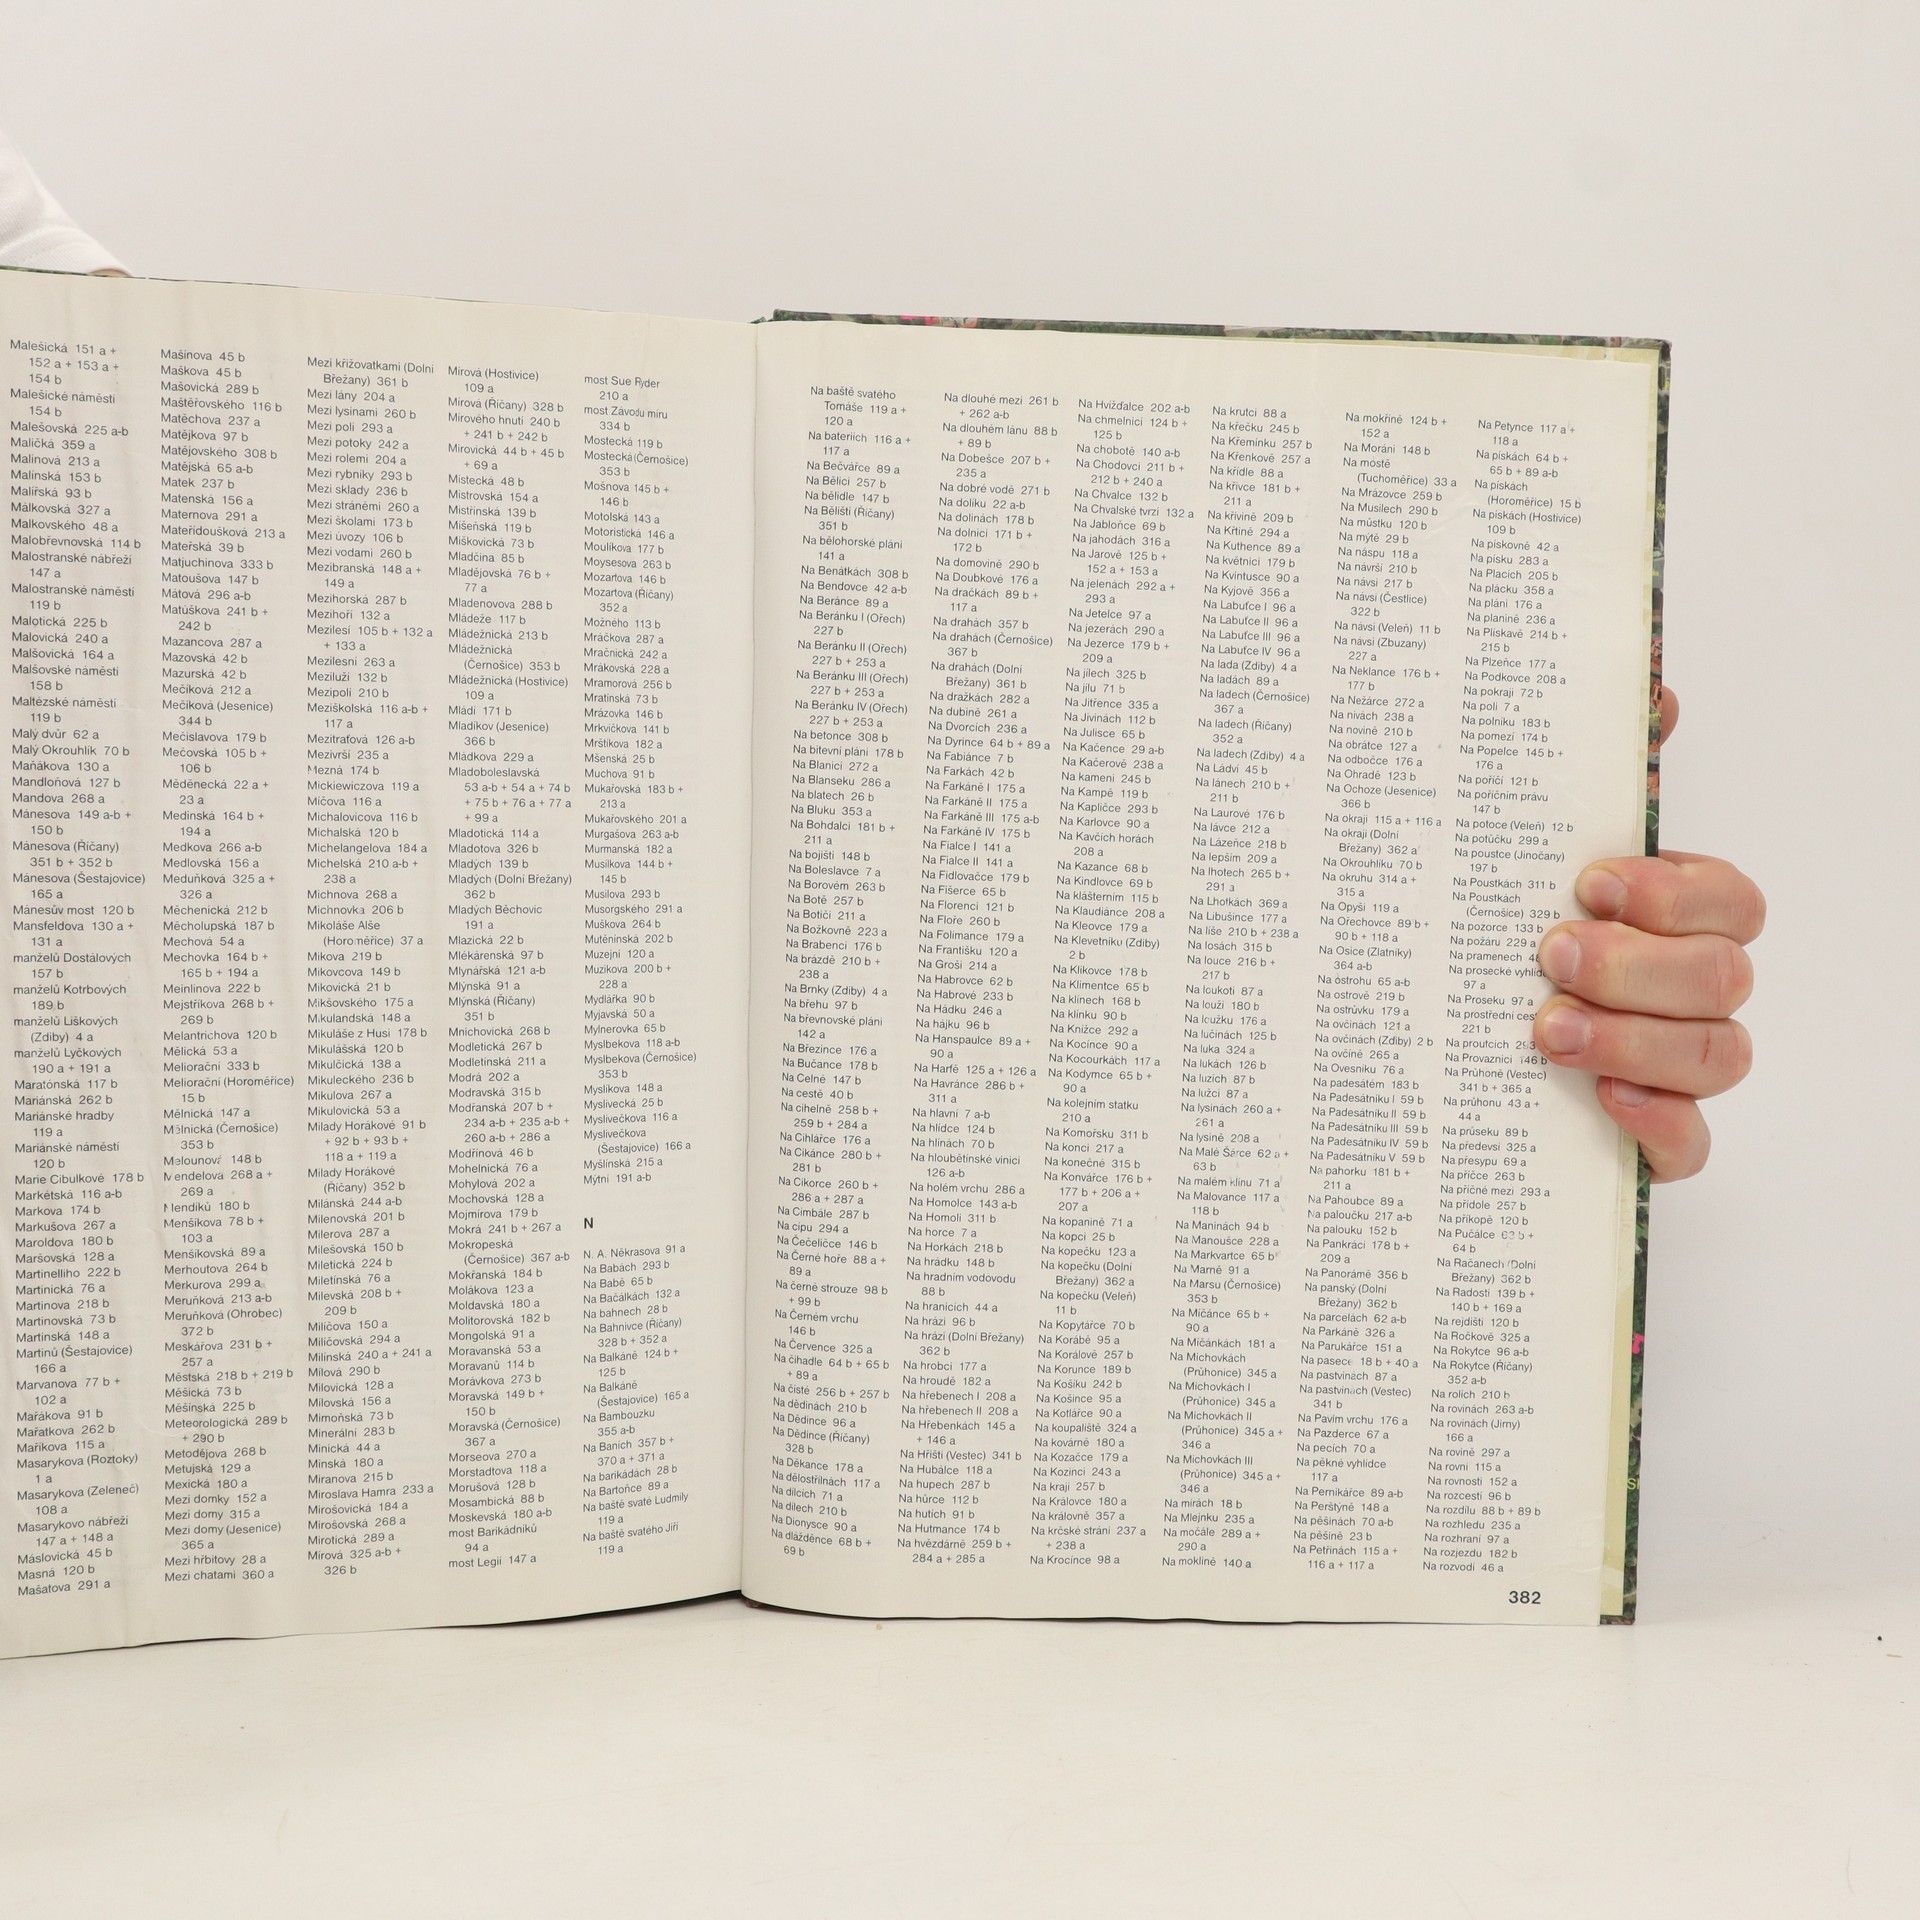 Malešická 151 a +
152 a + 153 a +
154 b
Malešické náměstí
154 b
Malešovská 225 a-b
Malička 359 a
Malinová 213 a
Malínská 153 b
Malířská 93 b
Málkovská 327 a
Malkovského 48 a
Malobřevnovská 114 b
Malostranské nábřeží
147 a
Malostranské náměstí
119 b
Malotická 225 b
Malovická 240 a
Malšovická 164 a
Malšovské náměstí
158 b
Maltézské náměstí
119 b
Malý dvůr 62 a
Malý Okrouhlík 70 b
Maňákova 130 a
Mandloňová 127 b
Mandova 268 a
Mánesova 149 a-b +
150 b
Mánesova (Říčany)
351 b + 352 b
Mánesova (Šestajovice)
165 a
Mánesův most 120 b
Mansfeldova 130 a +
131 a
manželů Dostálových
157 b
manželů Kotrbových
189 b
manželů Liškových
(Zdiby) 4 a
manželů Lyčkových
190 a + 191 a
Maratónská 117 b
Mariánská 262 b
Mariánské hradby
119 a
Mariánské náměstí
120 b
Marie Cibulkové 178 b
Markétská 116 a-b
Markova 174 b
Markušova 267 a
Maroldova 180 b
Maršovská 128 a
Martinelliho 222 b
Martinická 76 a
Martinova 218 b
Martinovská 73 b
Martinská 148 a
Martinů (Šestajovice)
166 a
Marvanova 77 b +
102 a
Mařákova 91 b
Mařatkova 262 b
Maříkova 115 a
Masarykova (Roztoky)
1 a
Masarykova (Zeleneč)
108 a
Masarykovo nábřeží
147 a + 148 a
Máslovická 45 b
Masná 120 b
Mašatova 291 a
Mašínova 45 b
Maškova 45 b
Mašovická 289 b
Maštěřovského 116 b
Matěchova 237 a
Matějkova 97 b
Matějovského 308 b
Matějská 65 a-b
Matek 237 b
Matenská 156 a
Maternova 291 a
Mateřídoušková 213 a
Mateřská 39 b
Matjuchinova 333 b
Matoušova 147 b
Mátová 296 a-b
Matúškova 241 b +
242 b
Mazancova 287 a
Mazovská 42 b
Mazurská 42 b
Mečíková 212 a
Mečíková (Jesenice)
344 b
Mečislavova 179 b
Mečovská 105 b +
106 b
Měděnecká 22 a +
23 a
Medinská 164 b +
194 a
Medkova 266 a-b
Medlovská 156 a
Meduňková 325 a +
326 a
Měchenická 212 b
Měcholupská 187 b
Mechová 54 a
Mechovka 164 b +
165 b + 194 a
Meinlinova 222 b
Mejstříkova 268 b +
269 b
Melantrichova 120 b
Mělická 53 a
Meliorační 333 b
Meliorační (Horoměřice)
15 b
Mělnická 147 a
Mělnická (Černošice)
353 b
Melounová 148 b
Mendelova 268 a +
269 a
Mendíků 180 b
Menšíkova 78 b +
103 a
Menšíkovská 89 a
Merhoutova 264 b
Merkurova 299 a
Meruňková 213 a-b
Meruňková (Ohrobec)
372 b
Meskářova 231 b +
257 a
Městská 218 b + 219 b
Měšická 73 b
Měšínská 225 b
Meteorologická 289 b
+ 290 b
Metodějova 268 b
Metujská 129 a
Mexická 180 a
Mezi domky 152 a
Mezi domy 315 a
Mezi domy (Jesenice)
365 a
Mezi hřbitovy 28 a
Mezi chatami 360 a
Mezi křižovatkami (Dolní
Břežany) 361 b
Mezi lány 204 a
Mezi lysinami 260 b
Mezi poli 293 a
Mezi potoky 242 a
Mezi rolemi 204 a
Mezi rybníky 293 b
Mezi sklady 236 b
Mezi stráněmi 260 a
Mezi školami 173 b
Mezi úvozy 106 b
Mezi vodami 260 b
Mezibranská 148 a +
149 a
Mezihorská 287 b
Mezihoří 132 a
Mezilesí 105 b + 132 a
+ 133 a
Mezilesní 263 a
Meziluží 132 b
Mezipolí 210 b
Meziškolská 116 a-b +
117 a
Mezitraťová 126 a-b
Mezivrší 235 a
Mezná 174 b
Mickiewiczova 119 a
Míčova 116 a
Michalovicova 116 b
Michalská 120 b
Michelangelova 184 a
Michelská 210 a-b +
238 a
Michnova 268 a
Michnovka 206 b
Mikoláše Alše
(Horoměřice) 37 a
Mikova 219 b
Mikovcova 149 b
Mikovická 21 b
Mikšovského 175 a
Mikulandská 148 a
Mikuláše z Husi 178 b
Mikulášská 120 b
Mikulčická 138 a
Mikuleckého 236 b
Mikulova 267 a
Mikulovická 53 a
Milady Horákové 91 b
+ 92 b + 93 b +
118 a + 119 a
Milady Horákové
(Říčany) 352 b
Milánská 244 a-b
Milenovská 201 b
Milerova 287 a
Milešovská 150 b
Miletická 224 b
Miletínská 76 a
Milevská 208 b +
209 b
Milíčova 150 a
Milíčovská 294 a
Milínská 240 a + 241 a
Milová 290 b
Milovická 128 a
Milovská 156 a
Mimoňská 73 b
Minerální 283 b
Minická 44 a
Minská 180 a
Miranova 215 b
Miroslava Hamra 233 a
Mirošovická 184 a
Mirošovská 268 a
Mirotická 289 a
Mírová 325 a-b +
326 b
Mírová (Hostivice)
109 a
Mírová (Říčany) 328 b
Mírového hnutí 240 b
+ 241 b + 242 b
Mirovická 44 b + 45 b
+ 69 a
Místecká 48 b
Mistrovská 154 a
Mistřínská 139 b
Mišeňská 119 b
Miškovická 73 b
Mladčina 85 b
Mladějovská 76 b +
77 a
Mladenovova 288 b
Mládeže 117 b
Mládežnická 213 b
Mládežnická
(Černošice) 353 b
Mládežnická (Hostivice)
109 a
Mládí 171 b
Mladíkov (Jesenice)
366 b
Mládkova 229 a
Mladoboleslavská
53 a-b + 54 a + 74 b
+ 75 b + 76 a + 77 a
+ 99 a
Mladotická 114 a
Mladotova 326 b
Mladých 139 b
Mladých (Dolní Břežany)
362 b
Mladých Běchovic
191 a
Mlazická 22 b
Mlékárenská 97 b
Mlynářská 121 a-b
Mlýnská 91 a
Mlýnská (Říčany)
351 b
Mnichovická 268 b
Modletická 267 b
Modletínská 211 a
Modrá 202 a
Modravská 315 b
Modřanská 207 b +
234 a-b + 235 a-b +
260 a-b + 286 a
Modřínová 46 b
Mohelnická 76 a
Mohylová 202 a
Mochovská 128 a
Mojmírova 179 b
Mokrá 241 b + 267 a
Mokropeská
(Černošice) 367 a-b
Mokřanská 184 b
Molákova 123 a
Moldavská 180 a
Molitorovská 182 b
Mongolská 91 a
Moravanská 53 a
Moravanů 114 b
Morávkova 273 b
Moravská 149 b +
150 b
Moravská (Černošice)
367 a
Morseova 270 a
Morstadtova 118 a
Morušová 128 b
Mosambická 88 b
Moskevská 180 a-b
most Barikádníků
94 a
most Legií 147 a
most Sue Ryder
210 a
most Závodu míru
334 b
Mostecká 119 b
Mostecká (Černošice)
353 b
Mošnova 145 b +
146 b
Motolská 143 a
Motoristická 146 a
Moulíkova 177 b
Moysesova 263 b
Mozartova 146 b
Mozartova (Říčany)
352 a
Možného 113 b
Mráčkova 287 a
Mračnická 242 a
Mrákovská 228 a
Mramorová 256 b
Mratínská 73 b
Mrázovka 146 b
Mrkvičkova 141 b
Mrštíkova 182 a
Mšenská 25 b
Muchova 91 b
Mukařovská 183 b +
213 a
Mukařovského 201 a
Murgašova 263 a-b
Murmanská 182 a
Musílkova 144 b +
145 b
Musilova 293 b
Musorgského 291 a
Muškova 264 b
Mutěnínská 202 b
Muzejní 120 a
Muzikova 200 b +
228 a
Mydlářka 90 b
Myjavská 50 a
Mylnerovka 65 b
Myslbekova 118 a-b
Myslbekova (Černošice)
353 b
Myslíkova 148 a
Myslivecká 25 b
Myslivečkova 116 a
Myslivečkova
(Šestajovice) 166 a
Myšlínská 215 a
Mýtní 191 a-b
N
N. A. Někrasova 91 a
Na Babách 293 b
Na Babě 65 b
Na Bačálkách 132 a
Na bahnech 28 b
Na Bahnivce (Říčany)
328 b + 352 a
Na Balkáně 124 b +
125 b
Na Balkáně
(Šestajovice) 165 a
Na Bambouzku
355 a-b
Na Baních 357 b +
370 a + 371 a
Na barikádách 28 b
Na Bartoňce 89 a
Na baště svaté Ludmily
119 a
Na baště svatého Jiří
119 a
Na baště svatého
Tomáše 119 a +
120 a
Na bateriích 116 a +
117 a
Na Bečvářce 89 a
Na Bělici 257 b
Na bělidle 147 b
Na Bělišti (Říčany)
351 b
Na bělohorské pláni
141 a
Na Benátkách 308 b
Na Bendovce 42 a-b
Na Beránce 89 a
Na Beránku I (Ořech)
227 b
Na Beránku II (Ořech)
227 b + 253 a
Na Beránku III (Ořech)
227 b + 253 a
Na Beránku IV (Ořech)
227 b + 253 a
Na betonce 308 b
Na bitevní pláni 178 b
Na Blanici 272 a
Na Blanseku 286 a
Na blatech 26 b
Na Bluku 353 a
Na Bohdalci 181 b +
211 a
Na bojišti 148 b
Na Boleslavce 7 a
Na Borovém 263 b
Na Botě 257 b
Na Botiči 211 a
Na Božkovně 223 a
Na Brabenci 176 b
Na brázdě 210 b +
238 a
Na Brnky (Zdiby) 4 a
Na břehu 97 b
Na břevnovské pláni
142 a
Na Březince 176 a
Na Bučance 178 b
Na Celné 147 b
Na cestě 40 b
Na cihelně 258 b +
259 b + 284 a
Na Cihlářce 176 a
Na Cikánce 280 b +
281 b
Na Cikorce 260 b +
286 a + 287 a
Na Cimbále 287 b
Na cípu 294 a
Na Čečeličce 146 b
Na Černé hoře 88 a +
89 a
Na černé strouze 98 b
+ 99 b
Na Černém vrchu
146 b
Na Července 325 a
Na čihadle 64 b + 65 b
+ 89 a
Na čisté 256 b + 257 b
Na dědinách 210 b
Na Dědince 96 a
Na Dědince (Říčany)
328 b
Na Děkance 178 a
Na dělostřílnách 117 a
Na dílcích 71 a
Na dílech 210 b
Na Dionysce 90 a
Na dlážděnce 68 b +
69 b
Na dlouhé mezi 261 b
+ 262 a-b
Na dlouhém lánu 88 b
+ 89 b
Na Dobešce 207 b +
235 a
Na dobré vodě 271 b
Na dolíku 22 a-b
Na dolinách 178 b
Na dolnici 171 b +
172 b
Na domovině 290 b
Na Doubkově 176 a
Na dračkách 89 b +
117 a
Na drahách 357 b
Na drahách (Černošice)
367 b
Na drahách (Dolní
Břežany) 361 b
Na dražkách 282 a
Na dubině 261 a
Na Dvorcích 236 a
Na Dyrince 64 b + 89 a
Na Fabiánce 7 b
Na Farkách 42 b
Na Farkáně I 175 a
Na Farkáně II 175 a
Na Farkáně III 175 a-b
Na Farkáně IV 175 b
Na Fialce I 141 a
Na Fialce II 141 a
Na Fidlovačce 179 b
Na Fišerce 65 b
Na Florenci 121 b
Na Floře 260 b
Na Folimance 179 a
Na Františku 120 a
Na Groši 214 a
Na Habrovce 62 b
Na Habrové 233 b
Na Hádku 246 a
Na hájku 96 b
Na Hanspaulce 89 a +
90 a
Na Harfě 125 a + 126 a
Na Havránce 286 b +
311 a
Na hlavní 7 a-b
Na hlídce 124 b
Na hlínách 70 b
Na hloubětínské vinici
126 a-b
Na holém vrchu 286 a
Na Homolce 143 a-b
Na Homoli 311 b
Na horce 7 a
Na Horkách 218 b
Na hrádku 148 b
Na hradním vodovodu
88 b
Na hranicích 44 a
Na hrázi 96 b
Na hrázi (Dolní Břežany)
362 b
Na hrobci 177 a
Na hroudě 182 a
Na hřebenech I 208 a
Na hřebenech II 208 a
Na Hřebenkách 145 a
+ 146 a
Na Hřišti (Vestec) 341 b
Na Hubálce 118 a
Na hupech 287 b
Na hůrce 112 b
Na hutích 91 b
Na Hutmance 174 b
Na hvězdárně 259 b +
284 a + 285 a
Na Hvížďalce 202 a-b
Na chmelnici 124 b +
125 b
Na chobotě 140 a-b
Na Chodovci 211 b +
212 b + 240 a
Na Chvalce 132 b
Na Chvalské tvrzi 132 a
Na Jabloňce 69 b
Na jahodách 316 a
Na Jarově 125 b +
152 a + 153 a
Na jelenách 292 a +
293 a
Na Jetelce 97 a
Na jezerách 290 a
Na Jezerce 179 b +
209 a
Na jílech 325 b
Na jílu 71 b
Na Jitřence 335 a
Na Jivinách 112 b
Na Julisce 65 b
Na Kačence 29 a-b
Na Kačerově 238 a
Na kameni 245 b
Na Kampě 119 b
Na Kapličce 293 b
Na Karlovce 90 a
Na Kavčích horách
208 a
Na Kazance 68 b
Na Kindlovce 69 b
Na klášterním 115 b
Na Klaudiánce 208 a
Na Kleovce 179 a
Na Klevetníku (Zdiby)
2 b
Na Klikovce 178 b
Na Klimentce 65 b
Na klínech 168 b
Na klínku 90 b
Na Knížce 292 a
Na Kocínce 90 a
Na Kocourkách 117 a
Na Kodymce 65 b +
90 a
Na kolejním statku
210 a
Na Komořsku 311 b
Na konci 217 a
Na konečné 315 b
Na Konvářce 176 b +
177 b + 206 a +
207 a
Na kopanině 71 a
Na kopci 25 b
Na kopečku 123 a
Na kopečku (Dolní
Břežany) 362 a
Na kopečku (Veleň)
11 b
Na Kopytářce 70 b
Na Korábě 95 a
Na Korálově 257 b
Na Korunce 189 b
Na Košíku 242 b
Na Košince 95 a
Na Kotlářce 90 a
Na koupaliště 324 a
Na kovárně 180 a
Na Kozačce 179 a
Na Kozinci 243 a
Na kraji 257 b
Na Královce 180 a
Na královně 357 a
Na krčské stráni 237 a
+ 238 a
Na Krocínce 98 a
Na krutci 88 a
Na křečku 245 b
Na Křemínku 257 b
Na Křenkově 257 a
Na křídle 88 a
Na křivce 181 b +
211 a
Na křivině 209 b
Na Křtině 294 a
Na Kuthence 89 a
Na květnici 179 b
Na Kvintusce 90 a
Na Kyjově 356 a
Na Labuťce I 96 a
Na Labuťce II 96 a
Na Labuťce III 96 a
Na Labuťce IV 96 a
Na lada (Zdiby) 4 a
Na ladách 89 a
Na ladech (Černošice)
367 a
Na ladech (Říčany)
352 a
Na ladech (Zdiby) 4 a
Na Ládví 45 b
Na lánech 210 b +
211 b
Na Laurové 176 b
Na lávce 212 a
Na Lázeňce 218 b
Na lepším 209 a
Na lhotech 265 b +
291 a
Na Lhotkách 369 a
Na Libušince 177 a
Na líše 210 b + 238 a
Na losách 315 b
Na louce 216 b +
217 b
Na loukoti 87 a
Na louži 180 b
Na loužku 176 a
Na lučinách 125 b
Na luka 324 a
Na lukách 126 b
Na luzích 87 b
Na lužci 87 a
Na lysinách 260 a +
261 a
Na lysině 208 a
Na Malé Šárce 62 a +
63 b
Na malém klínu 71 a
Na Malovance 117 a
118 b
Na Maninách 94 b
Na Manoušce 228 a
Na Markvartce 65 b
Na Marně 91 a
Na Marsu (Černošice)
353 b
Na Míčánce 65 b +
90 a
Na Míčánkách 181 a
Na Michovkách
(Průhonice) 345 a
Na Michovkách I
(Průhonice) 345 a
Na Michovkách II
(Průhonice) 345 a +
346 a
Na Michovkách III
(Průhonice) 345 a +
346 a
Na mírách 18 b
Na Mlejnku 235 a
Na močále 289 a +
290 a
Na moklině 140 a
Na mokřině 124 b +
152 a
Na Moráni 148 b
Na mostě
(Tuchoměřice) 33 a
Na Mrázovce 259 b
Na Musilech 290 b
Na můstku 120 b
Na mýtě 29 b
Na náspu 118 a
Na návrší 210 b
Na návsi 217 b
Na návsi (Čestlice)
322 b
Na návsi (Veleň) 11 b
Na návsi (Zbuzany)
227 a
Na Neklance 176 b +
177 b
Na Nežárce 272 a
Na nivách 238 a
Na novině 210 b
Na obrátce 127 a
Na odbočce 176 a
Na Ohradě 123 b
Na Ochoze (Jesenice)
366 b
Na okraji 115 a + 116 a
Na okraji (Dolní
Břežany) 362 a
Na Okrouhlíku 70 b
Na okruhu 314 a +
315 a
Na Opyši 119 a
Na Ořechovce 89 b +
90 b + 118 a
Na Osice (Zlatníky)
364 a-b
Na ostrohu 65 a-b
Na ostrově 219 b
Na ostrůvku 179 a
Na ovčinách 121 a
Na ovčinách (Zdiby) 2 b
Na ovčíně 265 a
Na Ovesníku 76 a
Na padesátém 183 b
Na Padesátníku I 59 b
Na Padesátníku II 59 b
Na Padesátníku III 59 b
Na Padesátníku IV 59 b
Na Padesátníku V 59 b
Na pahorku 181 b +
211 a
Na Pahoubce 89 a
Na paloučku 217 a-b
Na palouku 152 b
Na Pankráci 178 b +
209 a
Na Panorámě 356 b
Na panský (Dolní
Břežany) 362 b
Na parcelách 62 a-b
Na Parkáně 326 a
Na Parukářce 151 a
Na pasece 18 b + 40 a
Na pastvinách 87 a
Na pastvinách (Vestec)
341 b
Na Pavím vrchu 176 a
Na Pazderce 67 a
Na pecích 70 a
Na pěkné vyhlídce
117 a
Na Pernikářce 89 a-b
Na Perštýně 148 a
Na pěšinách 70 a-b
Na pěšině 23 b
Na Petřinách 115 a +
116 a + 117 a
Na Petynce 117 a +
118 a
Na pískách 64 b +
65 b + 89 a-b
Na pískách
(Horoměřice) 15 b
Na pískách (Hostivice)
109 b
Na pískovně 42 a
Na písku 283 a
Na Placích 205 b
Na plácku 358 a
Na pláni 176 a
Na planině 236 a
Na Plískavě 214 b +
215 b
Na Plzeňce 177 a
Na Podkovce 208 a
Na pokraji 72 b
Na poli 7 a
Na polníku 183 b
Na pomezí 174 b
Na Popelce 145 b +
176 a
Na poříčí 121 b
Na poříčním právu
147 b
Na potoce (Veleň) 12 b
Na potůčku 299 a
Na poustce (Jinočany)
197 b
Na Poustkách 311 b
Na Poustkách
(Černošice) 329 b
Na pozorce 133 b
Na požáru 229 a
Na pramenech
Na prosecké
97 a
Na Proseku 97 a
Na prostřední
221 b
Na proutcích
Na Provaznici 146 b
Na Průhoně (Vestec)
341 b + 365 a
Na průhonu 43 a +
44 a
Na průseku 89 b
Na předevsi 325 a
Na přesypu 69 a
Na příčce 263 b
Na příčné mezi 293 a
Na přídole 257 b
Na příkopě 120 b
Na Pučálce 63 b +
64 b
Na Račanech (Dolní
Břežany) 362 b
Na Radosti 139 b +
140 b + 169 a
Na rejdišti 120 b
Na Ročkově 325 a
Na Rokytce 96 a-b
Na Rokytce (Říčany)
352 a-b
Na rolích 210 b
Na rovinách 263 a-b
Na rovinách (Jirny)
166 a
Na rovině 297 a
Na rovni 115 a
Na rovnosti 152 a
Na rozcestí 96 b
Na rozdílu 88 b + 89 b
Na rozhledu 235 a
Na rozhraní 97 a
Na rozjezdu 182 b
Na rozvodí 46 a
382